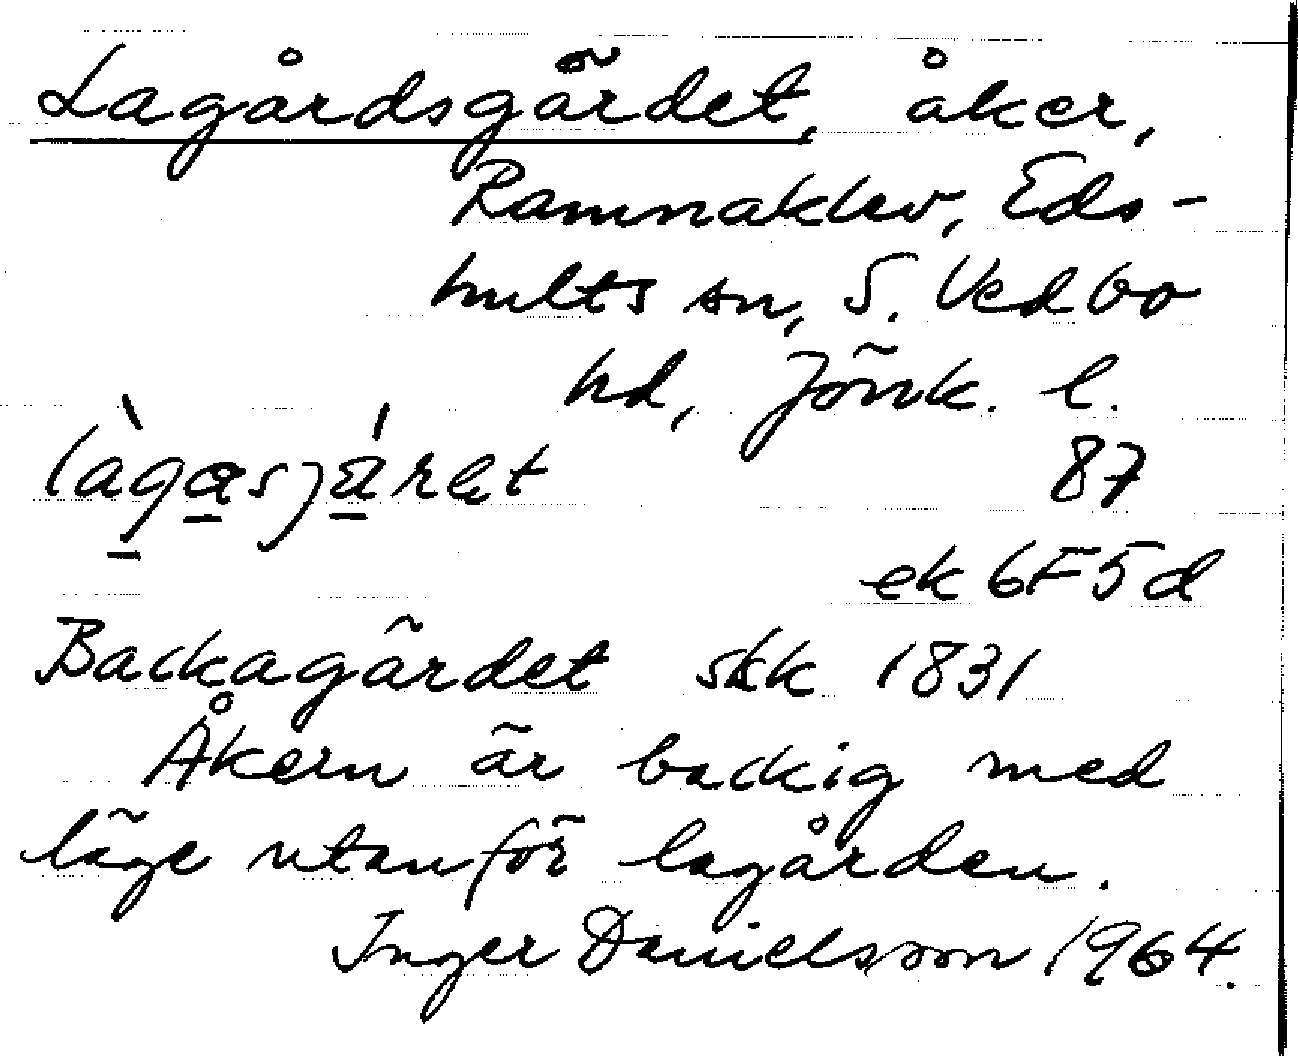 Lagårdsgärdet, åker,
Ramnaklev, Eds-
hults sn, S. Vedbo
hd, Jönk. l.
87
ek 6F5d
Backagärdet skk 1831
Åkern är backig med
läge utanför lagården.
Inger Danielsson 1964.